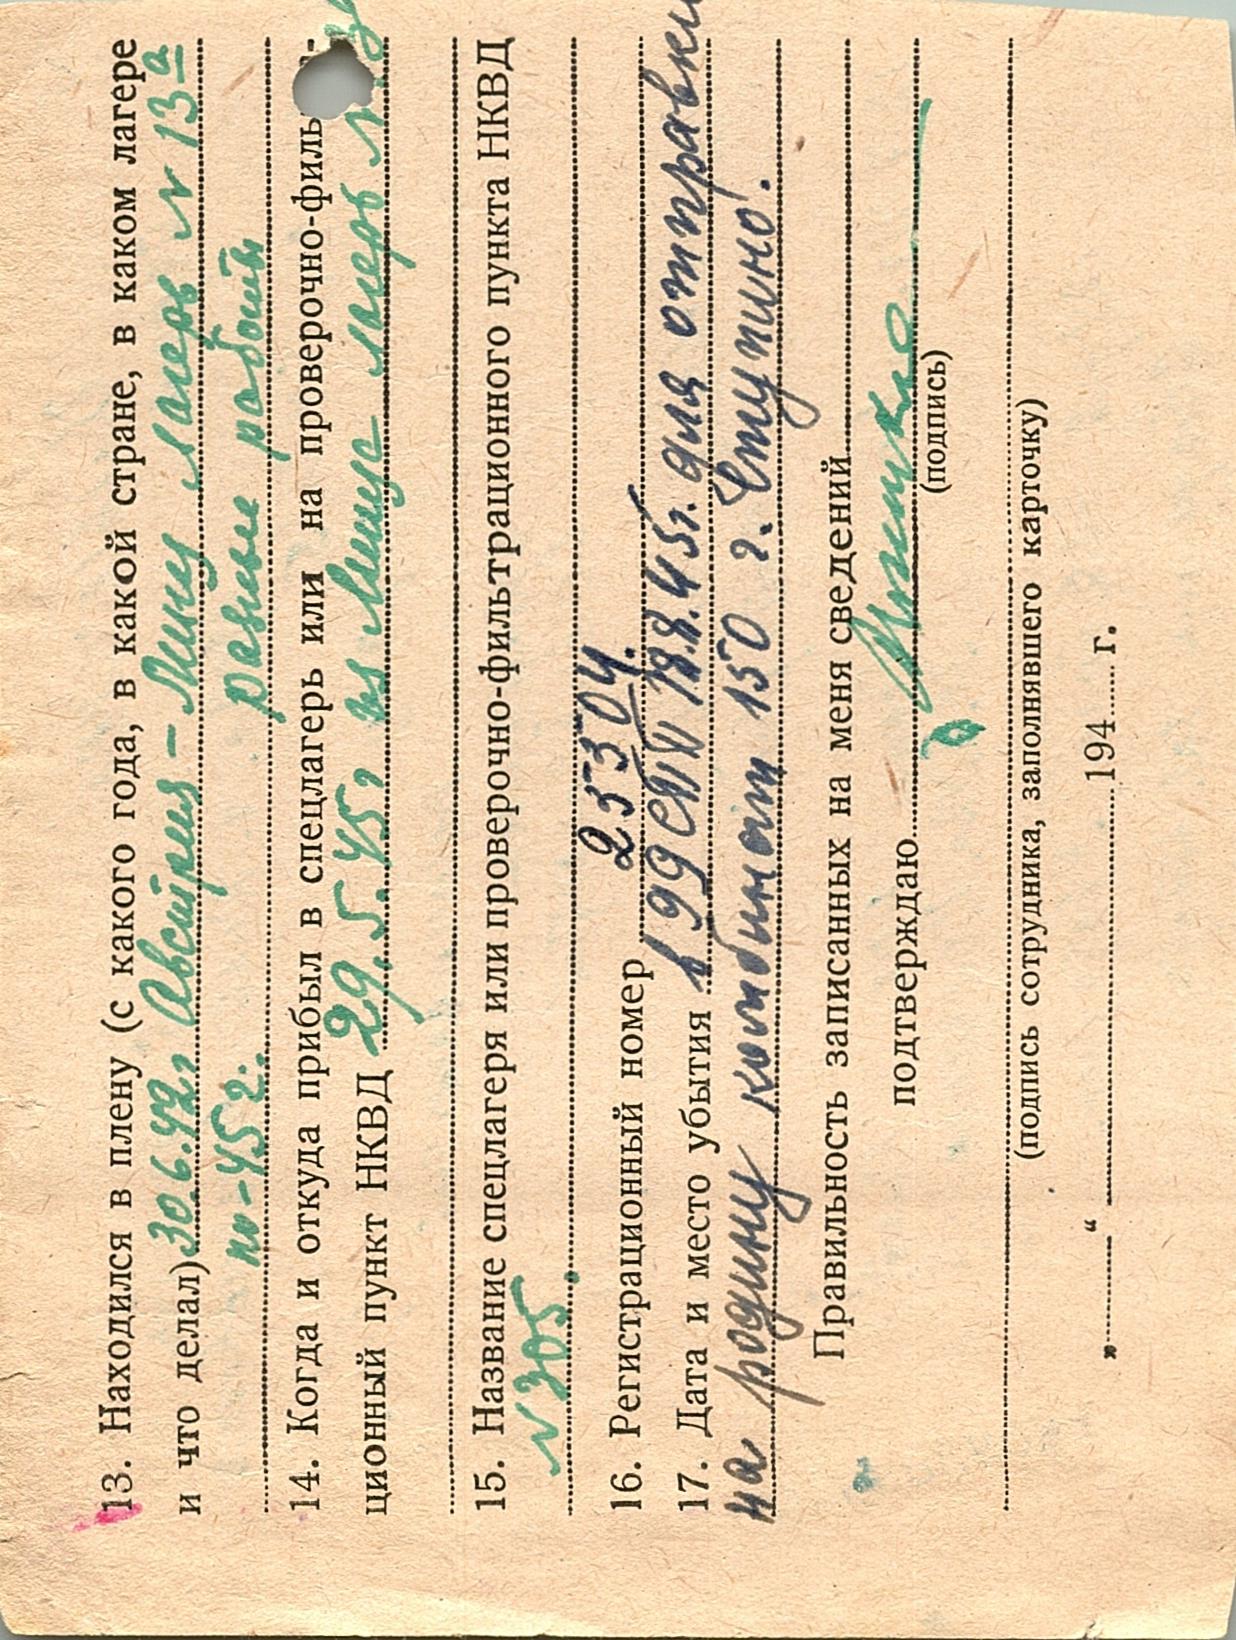 13. Находился в плену (с какого года, в какой стране, в каком лагере
и что делал) 30.6.42г Австрия – Линц лагерь № 13а
по – 45 г. разные работы
14. Когда и откуда прибыл в спецлагерь или на проверочно-филь-
ционный пункт НКВД 29.5.45г из Линца лагерь №
15. Название спецлагеря или проверочно-фильтрационного пункта НКВД
№ 305.
16. Регистрационный номер 25304.
17. Дата и место убытия в 99 18.8.45г. для отправки
на родину комбинат 150 г. Ступино.
Правильность записанных на меня сведений
подтверждаю
(подпись)
(подпись сотрудника, заполнявшего карточку)
„ “ 194 г.